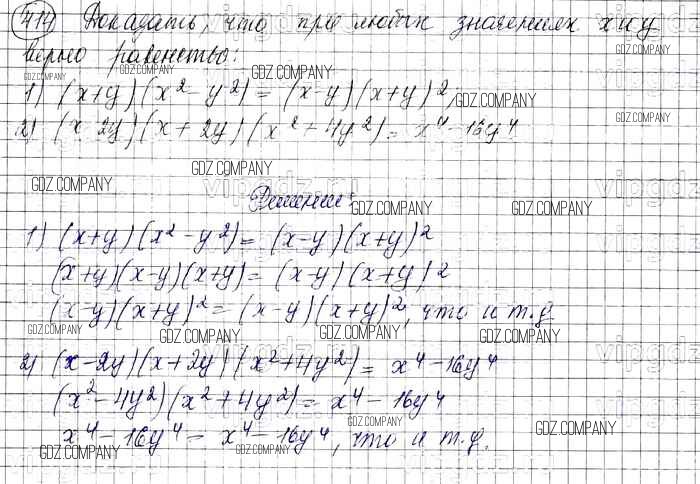 414 Доказать, что при любых значениях x и y
верно равенство:
1) (x+y)(x²-y²)=(x-y)(x+y)²
2) (x-2y)(x+2y)(x²+4y²)=x⁴-16y⁴
Решение:
1) (x+y)(x²-y²)=(x-y)(x+y)²
(x+y)(x-y)(x+y)=(x-y)(x+y)²
(x-y)(x+y)²=(x-y)(x+y)², что и т.д.
2) (x-2y)(x+2y)(x²+4y²)=x⁴-16y⁴
(x²-4y²)(x²+4y²)=x⁴-16y⁴
x⁴-16y⁴=x⁴-16y⁴, что и т.д.
GDZ.COMPANY
vipgdz.ru